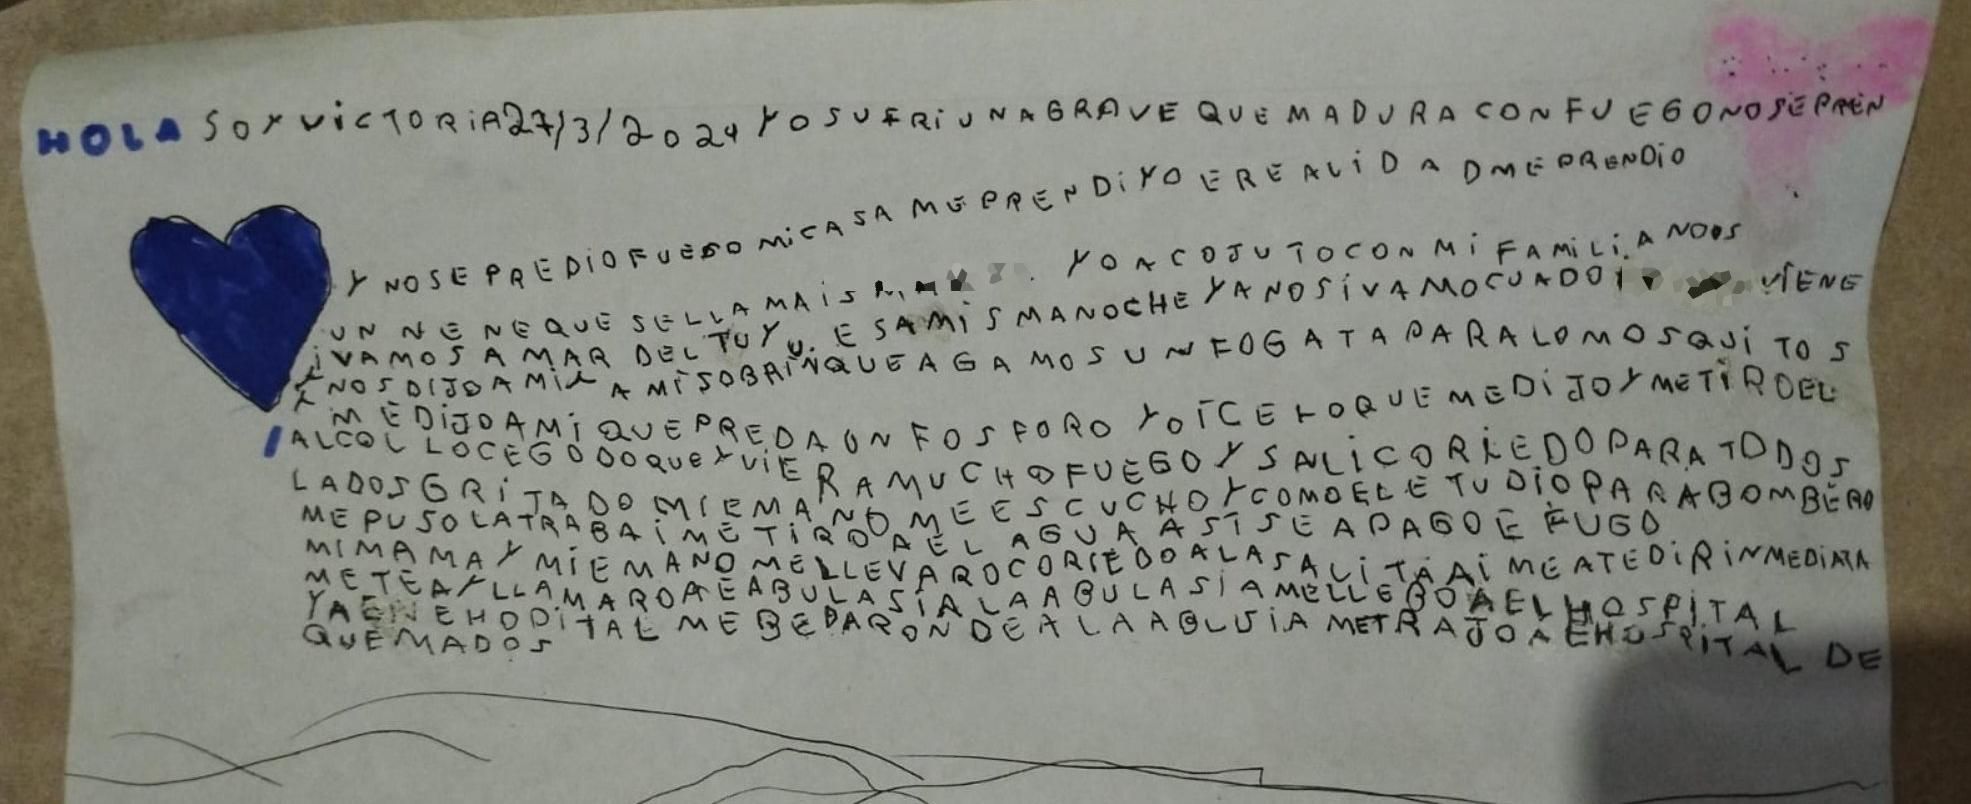 HOLA SOY VICTORIA 27/3/2024 YO SUFRI UNA GRAVE QUEMADURA CON FUEGO NO SE PREN
Y NO SE PREDIO FUEGO MI CASA ME PRENDI YO E REALIDAD ME PRENDIO
UN NENE QUE SE LLAMA IS YO ACOJUTO CON MI FAMILIA NOOS
IVAMOS A MAR DEL TUYU. ESA MISMA NOCHE YA NOS IVAMO CUADO VIENE
Y NOS DIJO A MI Y A MI SOBRIN QUE AGAMOS UN FOGATA PARA LO MOSQUITOS
ME DIJO A MI QUE PREDA UN FOSFORO YO ICE LO QUE ME DIJO Y ME TIRO EL
ALCOL LO CEGODO QUE Y VI ERA MUCHO FUEGO Y SALI CORIEDO PARA TODOS
LADOS GRITADO MI EMANO ME ESCUCHO Y COMO EL ETUDIO PARA BOMBERO
ME PUSO LA TRABA I ME TIRO A EL AGUA ASI SE APAGO E FUGO
MI MAMA Y MI EMANO ME LLEVARO CORIEDO A LA SALITA AI ME ATEDIR INMEDIATA
METE A Y LLAMARO A E ABULASIA LA ABULASIA ME LLEBO A EL HOSPITAL
YA EN E HOPITAL ME BEPARON DE A LA ABLUSIA ME TRAJO A EHOSPITAL DE
QUEMADOS